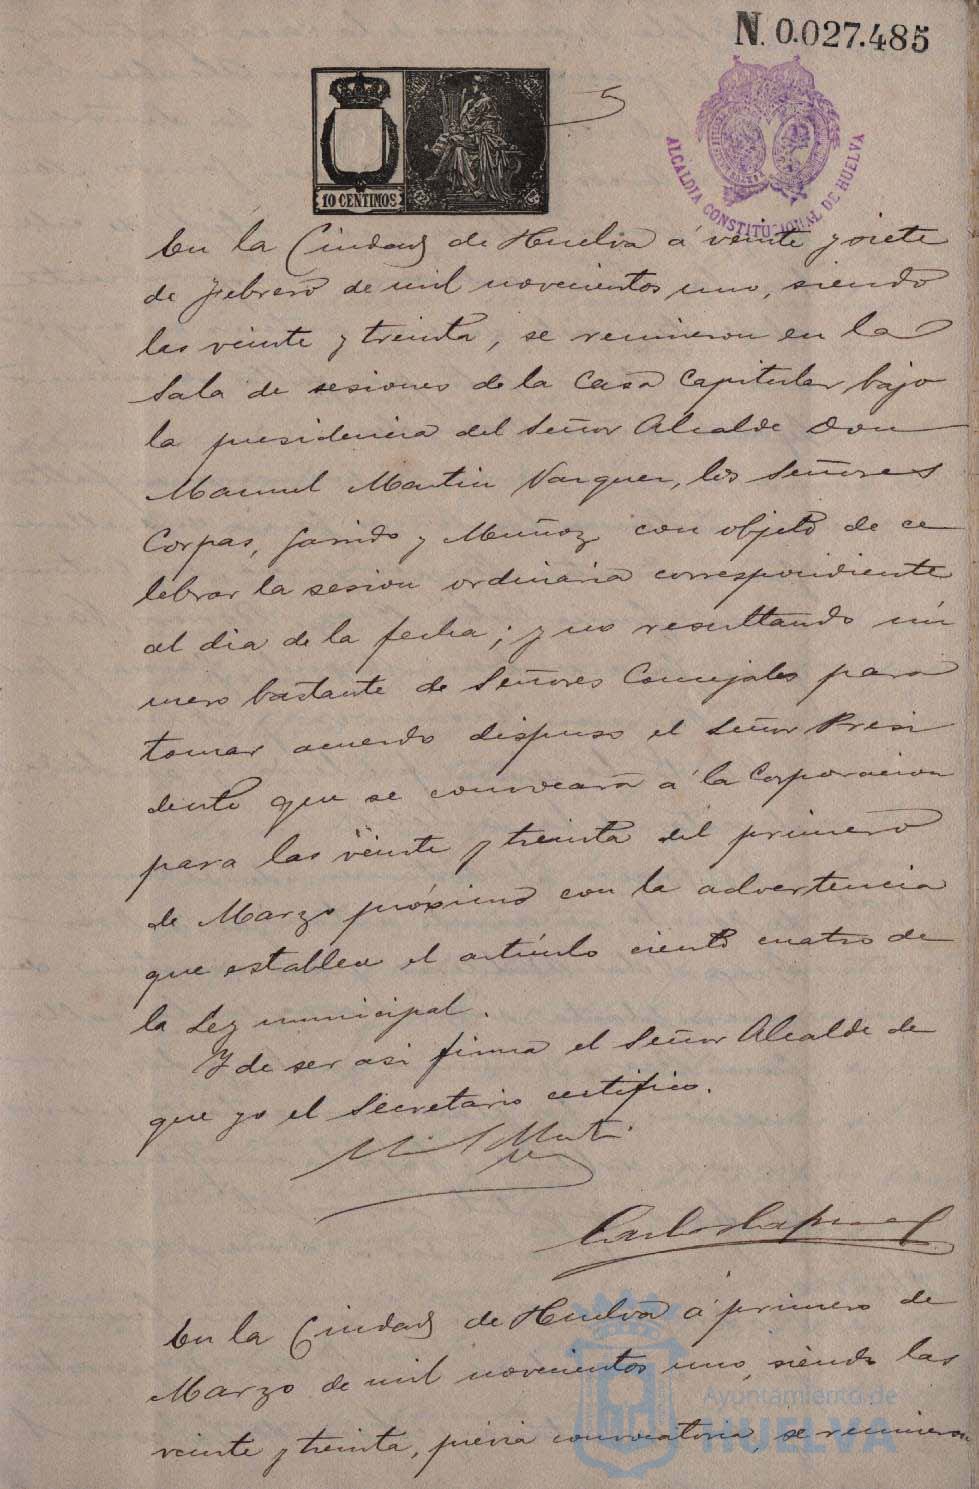 N. 0.027.485
10 CENTIMOS
ALCALDIA CONSTITUCIONAL DE HUELVA
En la Ciudad de Huelva á veinte y siete
de Febrero de mil novecientos uno, siendo
las veinte y treinta, se reunieron en la
Sala de sesiones de la Casa Capitular bajo
la presidencia del Señor Alcalde Don
Manuel Martin Vazquez, los Señores
Corpas, Garrido y Muñoz con objeto de ce
lebrar la sesion ordinaria correspondiente
al dia de la fecha; y no resultando nú
mero bastante de Señores Concejales para
tomar acuerdo dispuso el Señor Presi
dente que se convocara á la Corporacion
para las veinte y treinta del primero
de Marzo próximo con la advertencia
que establece el artículo ciento cuatro de
la Ley municipal.
Y de ser asi firma el Señor Alcalde de
que yo el Secretario certifico.
En la Ciudad de Huelva á primero de
Marzo de mil novecientos uno, siendo las
veinte y treinta, prévia convocatoria, se reunieron
Ayuntamiento de
HUELVA